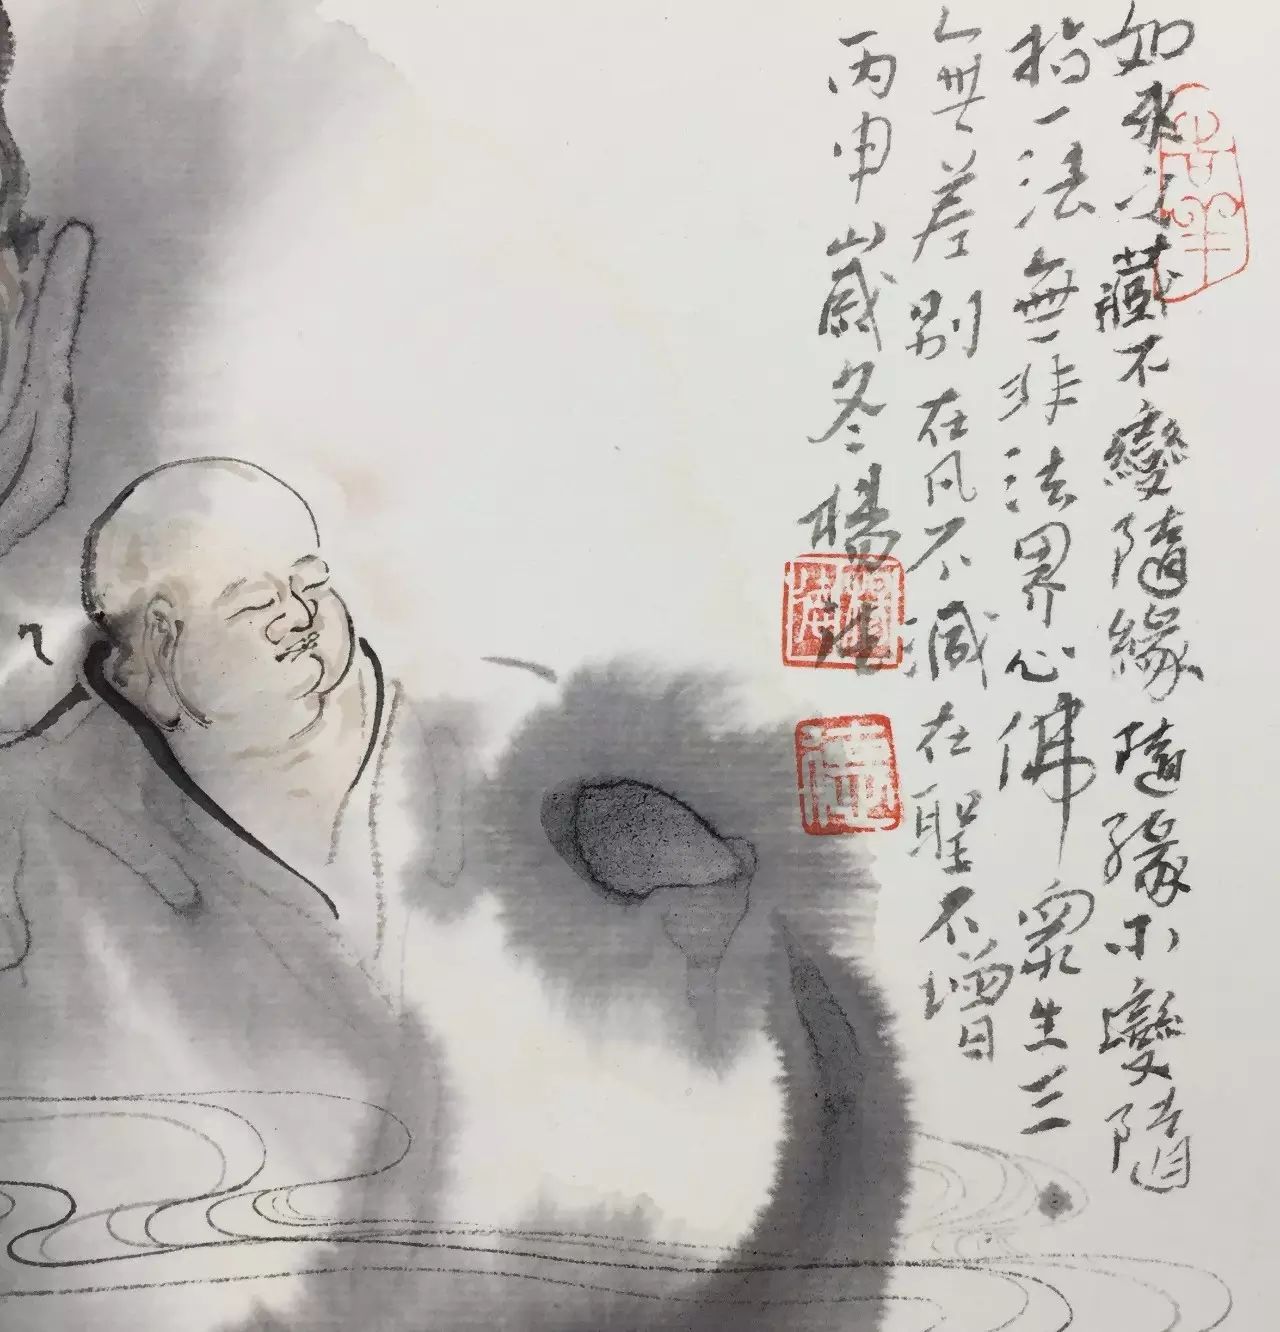 如來之藏不變隨緣隨緣不變隨
指一法無非法界心佛眾生三
無差別在凡不減在聖不增
丙申歲冬楊